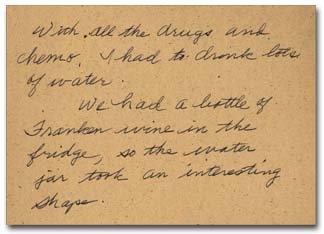 With all the drugs and
chemo, I had to dronk lots
of water.
We had a bottle of
Franken wine in the
fridge, so the water
jar took an interesting
shape.